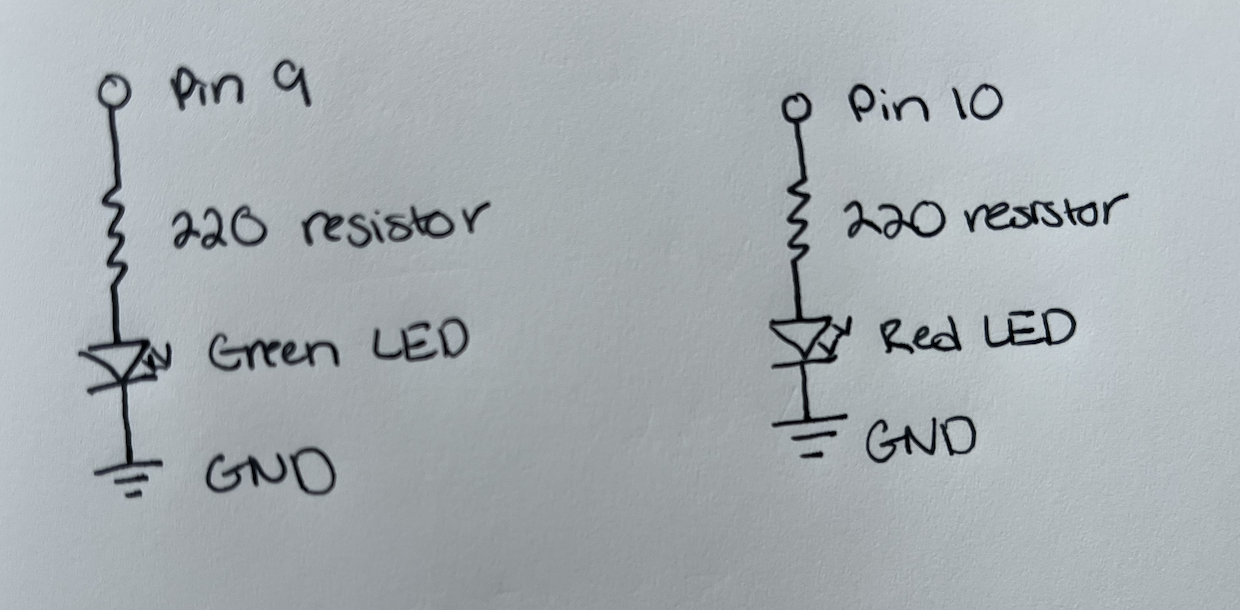 Pin 9
220 resistor
Green LED
GND
Pin 10
220 resistor
Red LED
GND